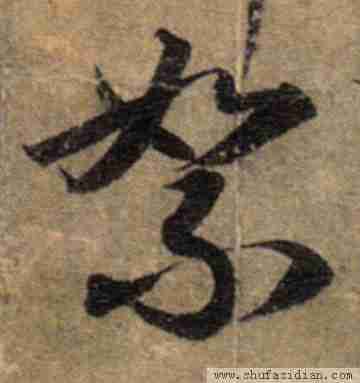 絮
www.shufazidian.com